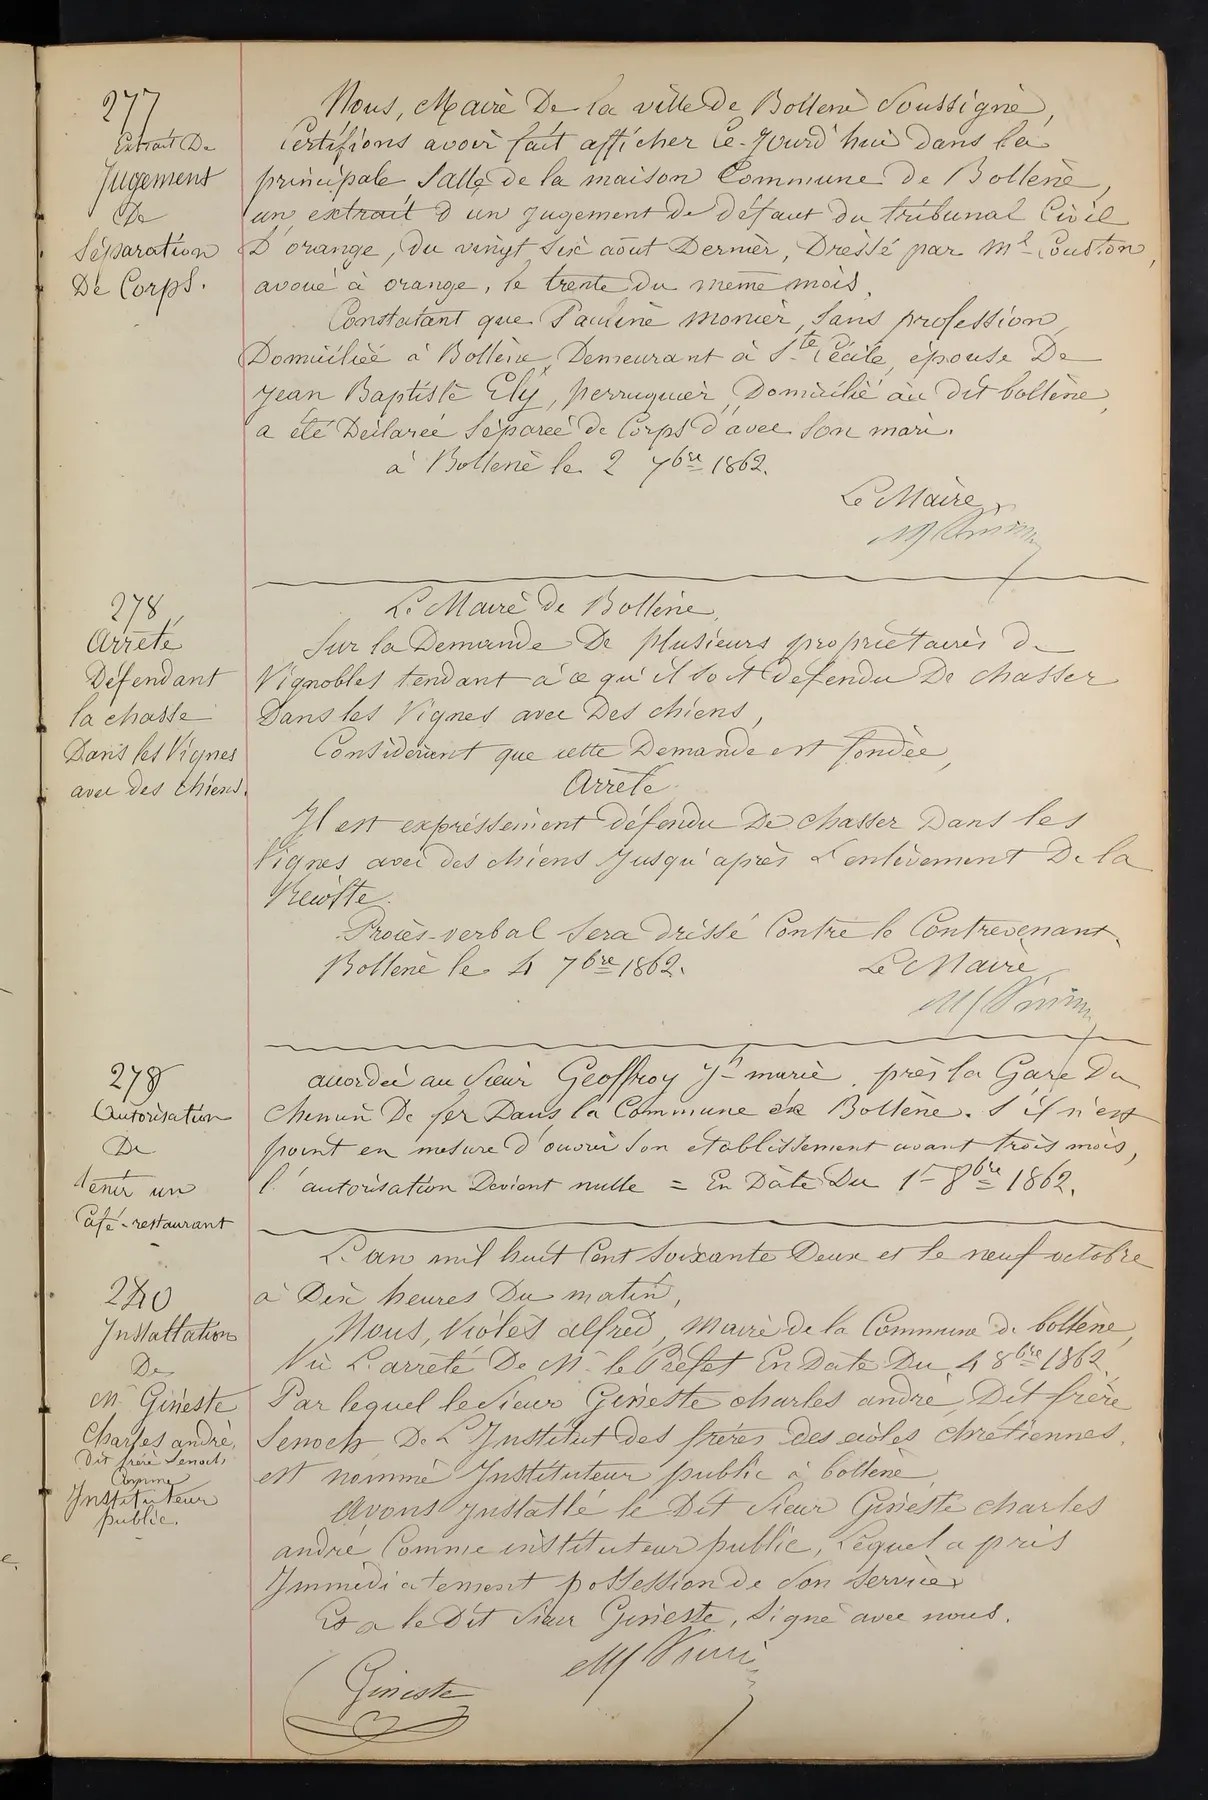 277
Extrait De
Jugement
De
Séparation
De Corps.
Nous, Maire De la ville de Bollène Soussigné,
Certifions avoir fait afficher Ce-Jourd'hui dans la
principale Salle de la maison Commune de Bollène,
un extrait d'un jugement de défaut du tribunal Civil
D'orange, du vingt six août Dernier, Dressé par Me Couston,
avoué à orange, le trente du même mois.
Constatant que Pauline monier, Sans profession
Domiciliée à Bollène, Demeurant à Ste Cécile, épouse De
Jean Baptiste Ely, perruquier, Domicilié au dit bollène,
a été Déclarée Séparée de Corps d'avec Son mari.
à Bollène le 2 7bre 1862.
Le Maire
278
Arrêté
Défendant
la chasse
Dans les Vignes
avec des chiens.
Le Maire de Bollène,
Sur la Demande De plusieurs propriétaires de
Vignobles tendant à ce qu'il soit défendu De chasser
Dans les Vignes avec Des chiens,
Considérant que cette Demande est fondée,
Arrête
Il est expressément défendu De chasser Dans les
Vignes avec des chiens Jusqu'après L'enlèvement De la
Récolte.
Procès-verbal Sera dressé Contre le Contrevenant.
Bollène le 4 7bre 1862.
Le Maire
279
Autorisation
De
tenir un
Café-restaurant
accordée au Sieur Geoffroy Jh marie, près la Gare Du
chemin De fer Dans la Commune de Bollène. S'il n'est
point en mesure d'ouvrir Son établissement avant trois mois,
l'autorisation Devient nulle = En Date Du 1er 8bre 1862.
280
Installation
De
Mr Gineste
Charles andré,
Dit frère Senoch,
Comme
Instituteur
public.
L'an mil huit Cent Soixante Deux et le neuf octobre
à Dix heures Du matin,
Nous, Violès alfred, Maire de la Commune de bollène,
Vu L'arrêté De Mr le Préfet En Date Du 4 8bre 1862,
Par lequel le Sieur Gineste charles andré, Dit frère
Senoch, De L'Institut des frères des écoles chrétiennes,
est nommé Instituteur public à bollène,
Avons Installé le Dit Sieur Gineste charles
andré Comme instituteur public, Lequel a pris
Immédiatement possession de Son Service.
Et a le Dit Sieur Gineste, Signé avec nous.
Gineste